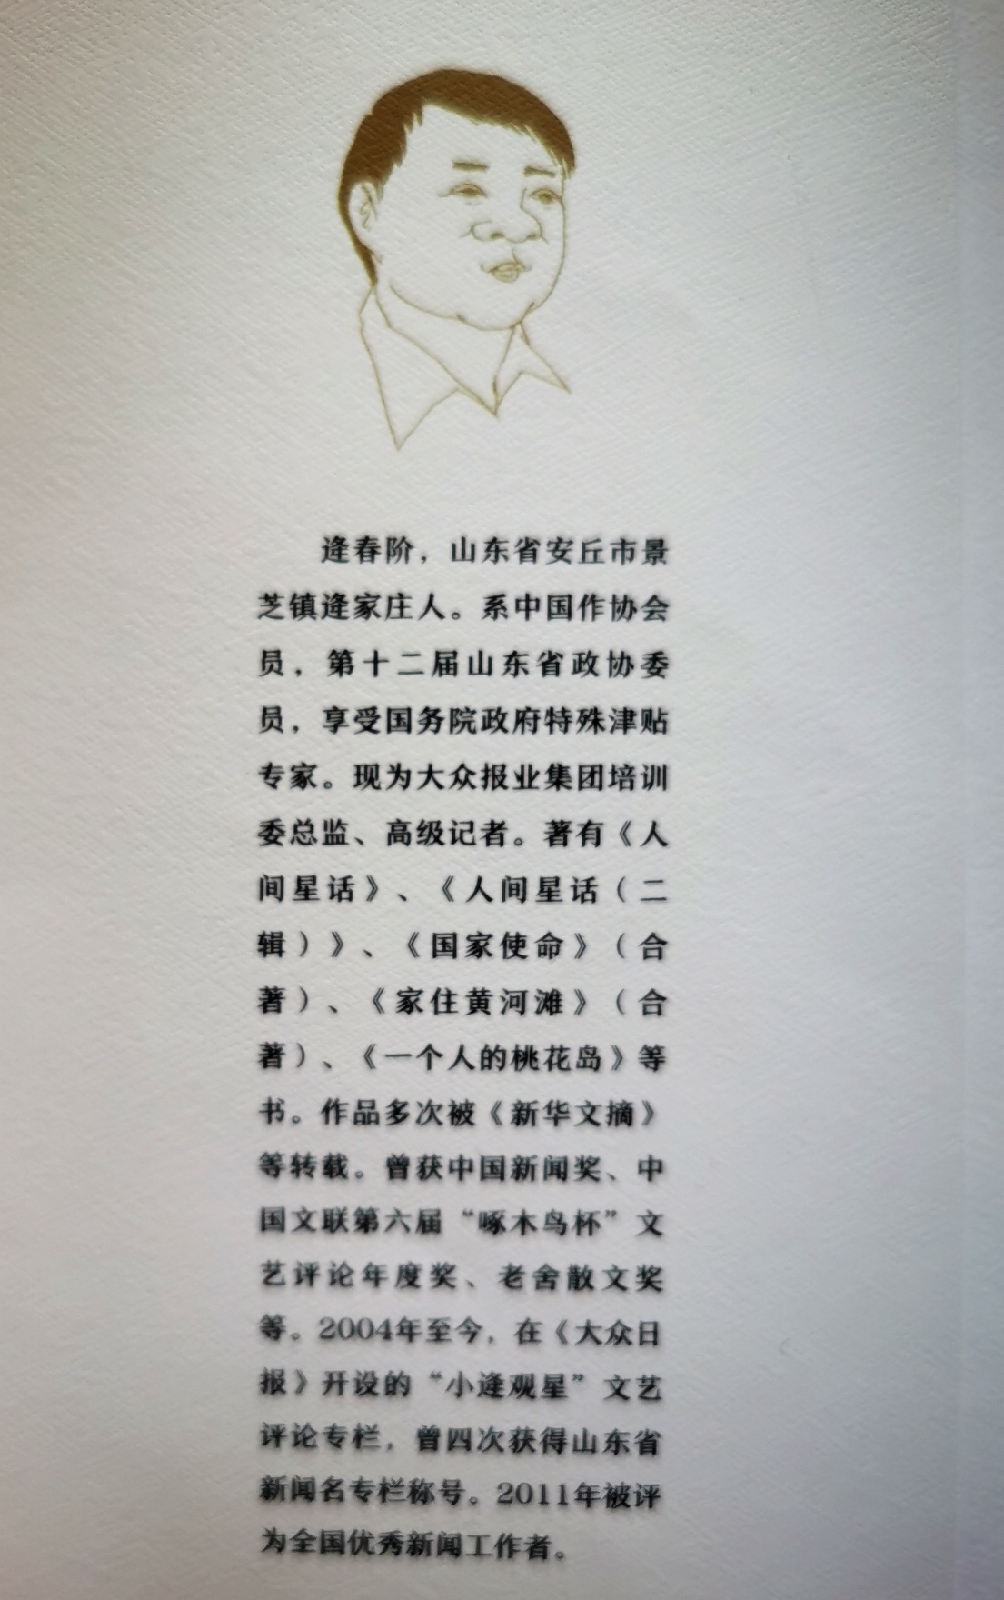 逄春阶，山东省安丘市景
芝镇逄家庄人。系中国作协会
员，第十二届山东省政协委
员，享受国务院政府特殊津贴
专家。现为大众报业集团培训
委总监、高级记者。著有《人
间星话》、《人间星话（二
辑）》、《国家使命》（合
著）、《家住黄河滩》（合
著）、《一个人的桃花岛》等
书。作品多次被《新华文摘》
等转载。曾获中国新闻奖、中
国文联第六届“啄木鸟杯”文
艺评论年度奖、老舍散文奖
等。2004年至今，在《大众日
报》开设的“小逄观星”文艺
评论专栏，曾四次获得山东省
新闻名专栏称号。2011年被评
为全国优秀新闻工作者。